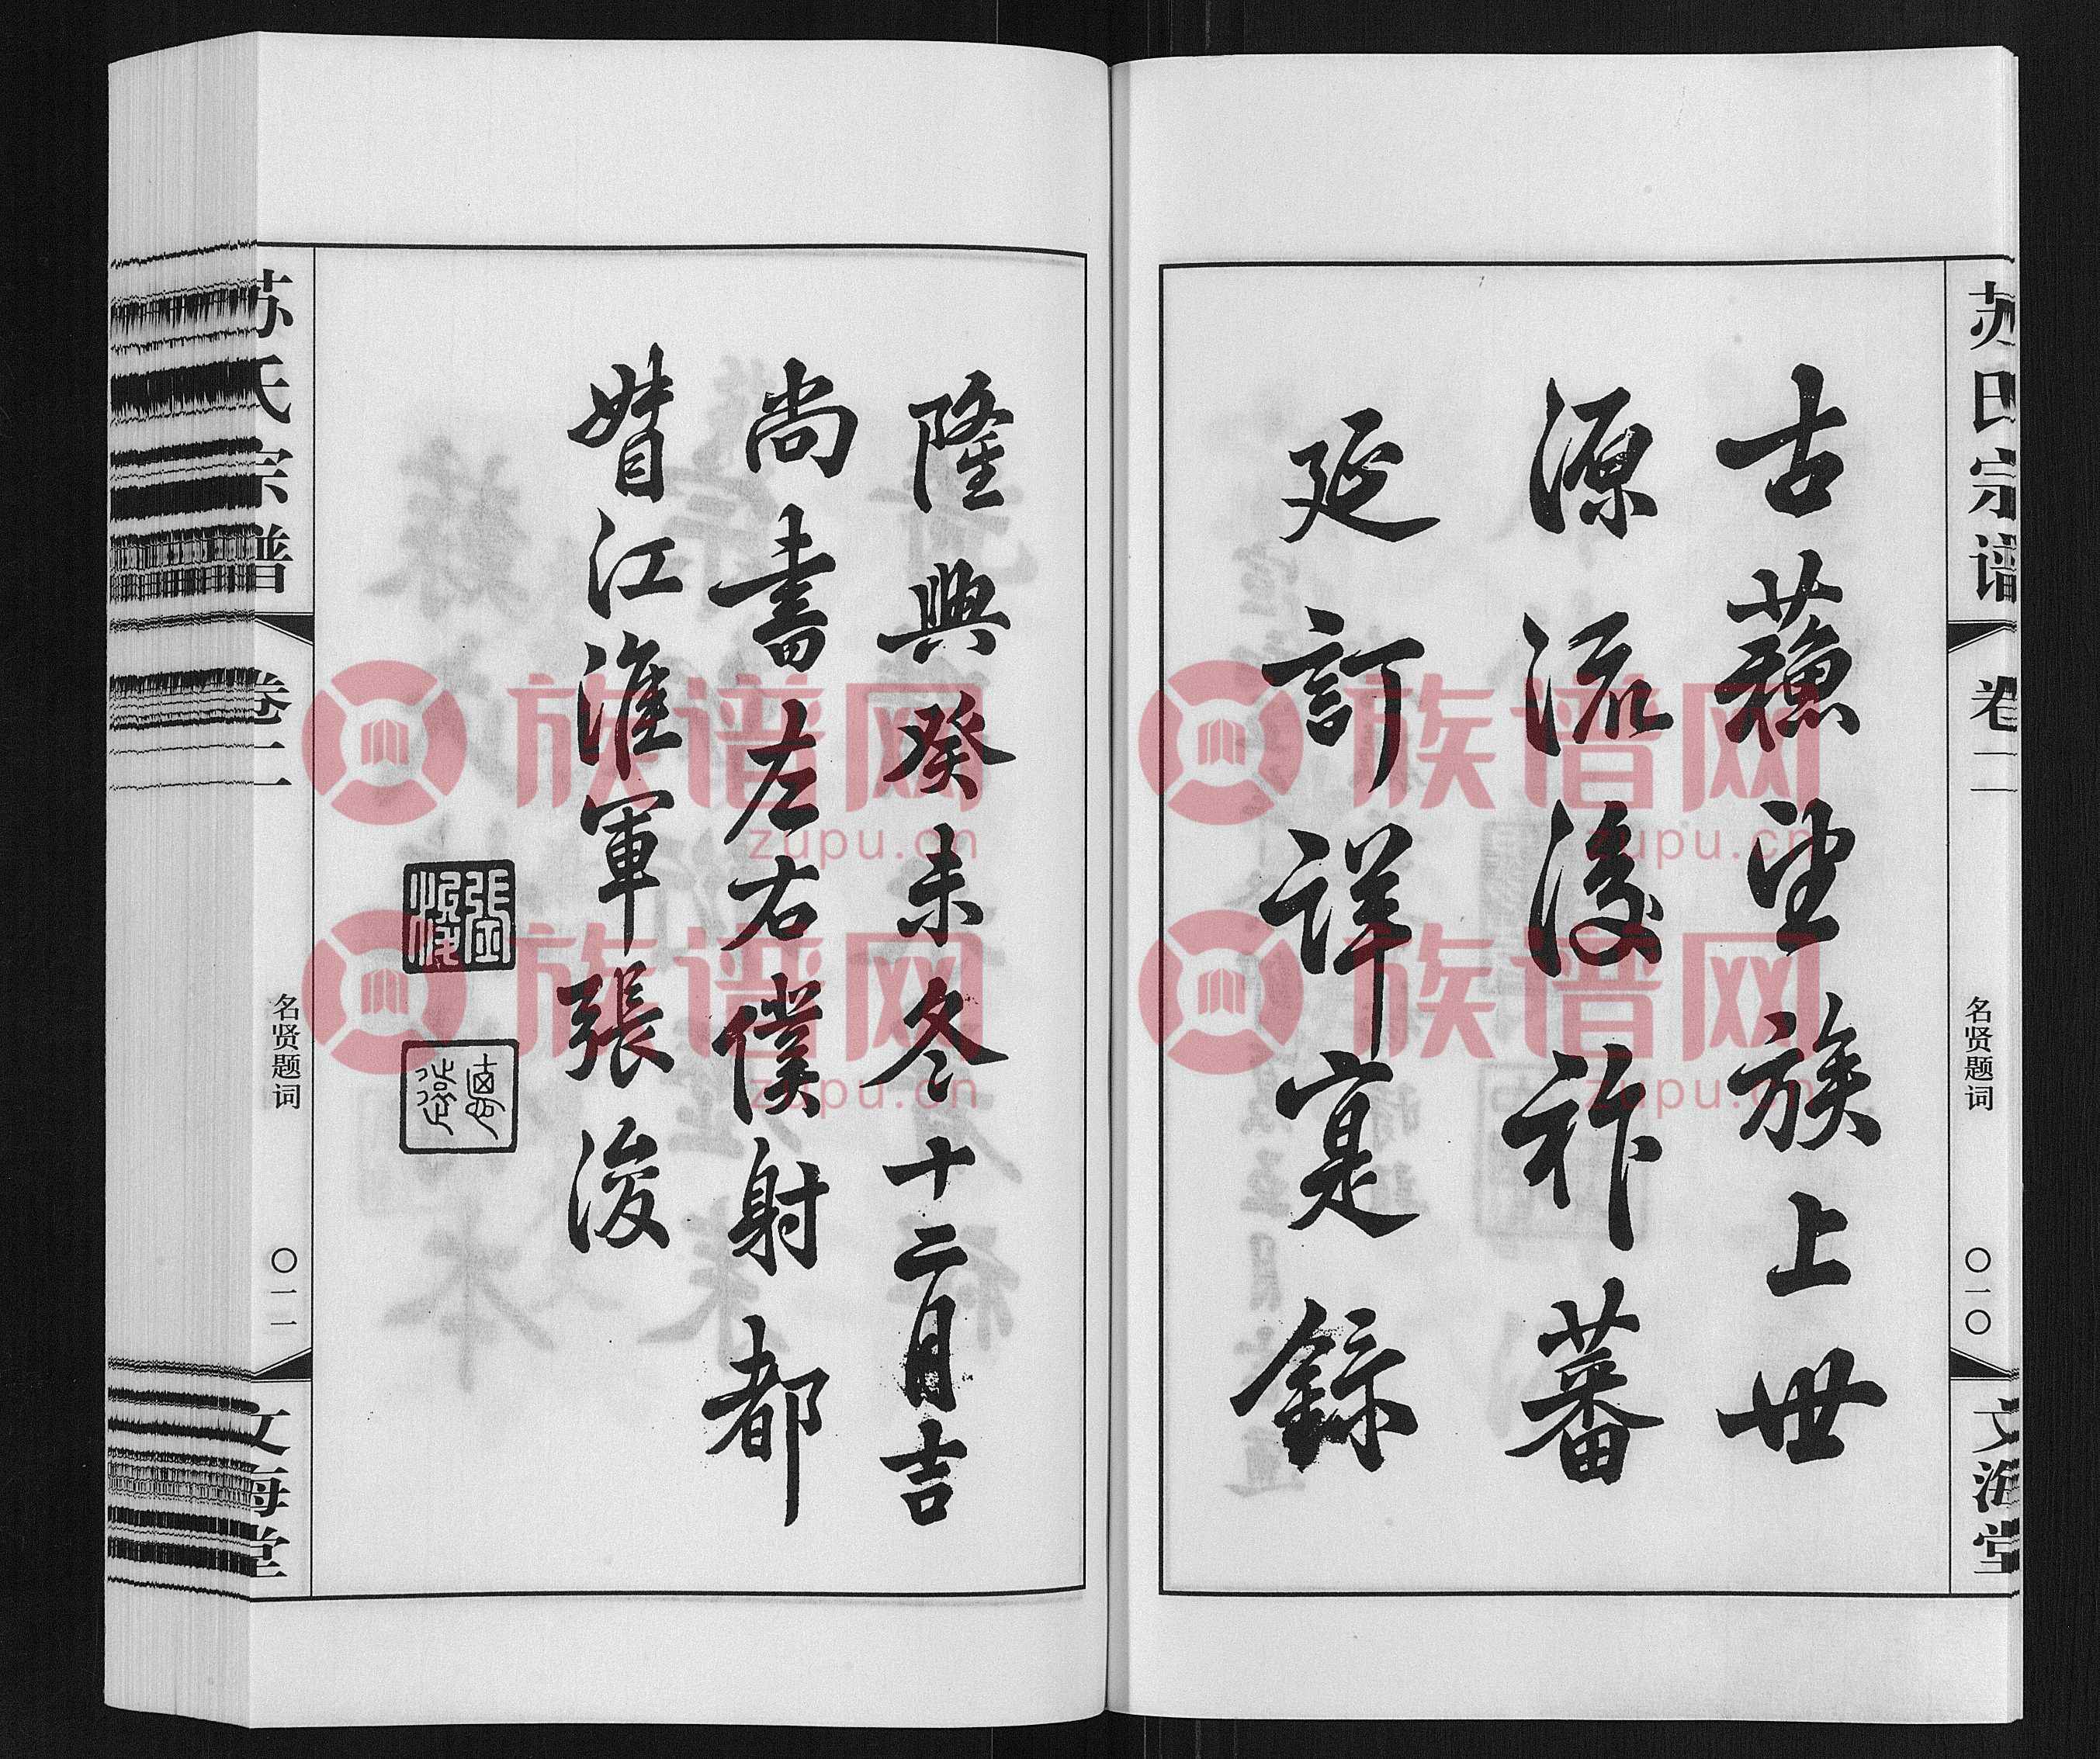 苏氏宗谱
卷二
名贤题词
〇一〇
文海堂
古蘓望族上世
源流後祚蕃
延訂詳寔錄
隆興癸未冬十二月吉
尚書左右僕射都
督江淮軍張浚
張浚
德遠
苏氏宗谱
卷二
名贤题词
〇一一
文海堂
族谱网
zupu.cn
族谱网
zupu.cn
族谱网
zupu.cn
族谱网
zupu.cn